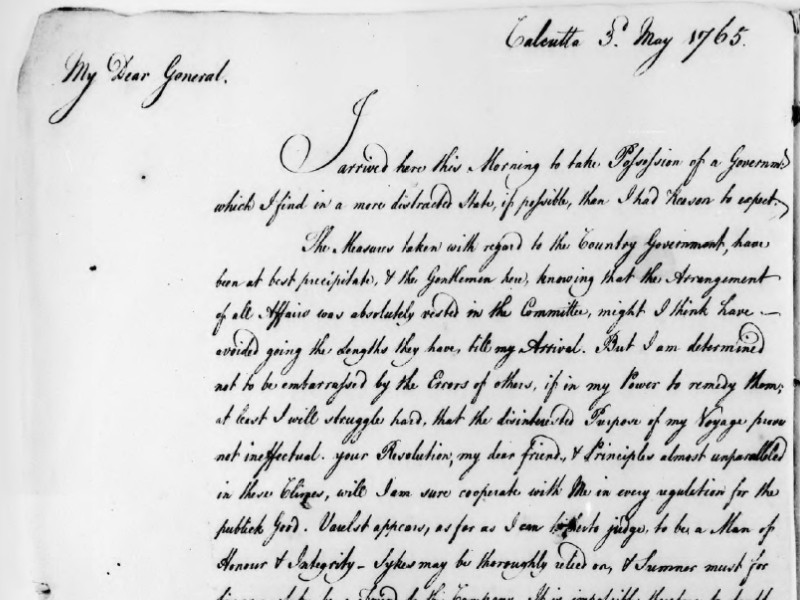 Calcutta 3d. May 1765.
My Dear General.
I arrived here this Morning to take Possession of a Governmt
which I find in a more distracted State, if possible, than I had Reason to expect.
The Measures taken with regard to the Country Government, have
been at best precipitate, & the Gentlemen here, knowing that the Arrangement
of all Affairs was absolutely vested in the Committee, might I think have
avoided going the Lengths they have, till my Arrival. But I am determined
not to be embarrassed by the Errors of others, if in my Power to remedy them;
at least I will struggle hard, that the disinterested Purpose of my Voyage prove
not ineffectual. your Resolution, my dear friend, & Principles almost unparalleled
in these Climes, will I am sure cooperate with Me in every regulation for the
publick Good. Varelst appears, as far as I can hitherto judge, to be a Man of
Honour & Integrity - Sykes may be thoroughly relied on, & Sumner must for
to be a Friend to the Company. It is impossible